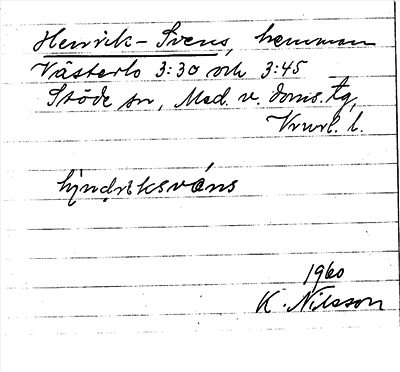 Henrik-Svens, hemman
Västerlo 3:30 och 3:45
Stöde sn, Med. v. doms. tg,
Vnrl. l.
hjndriksváns
1960
K. Nilsson